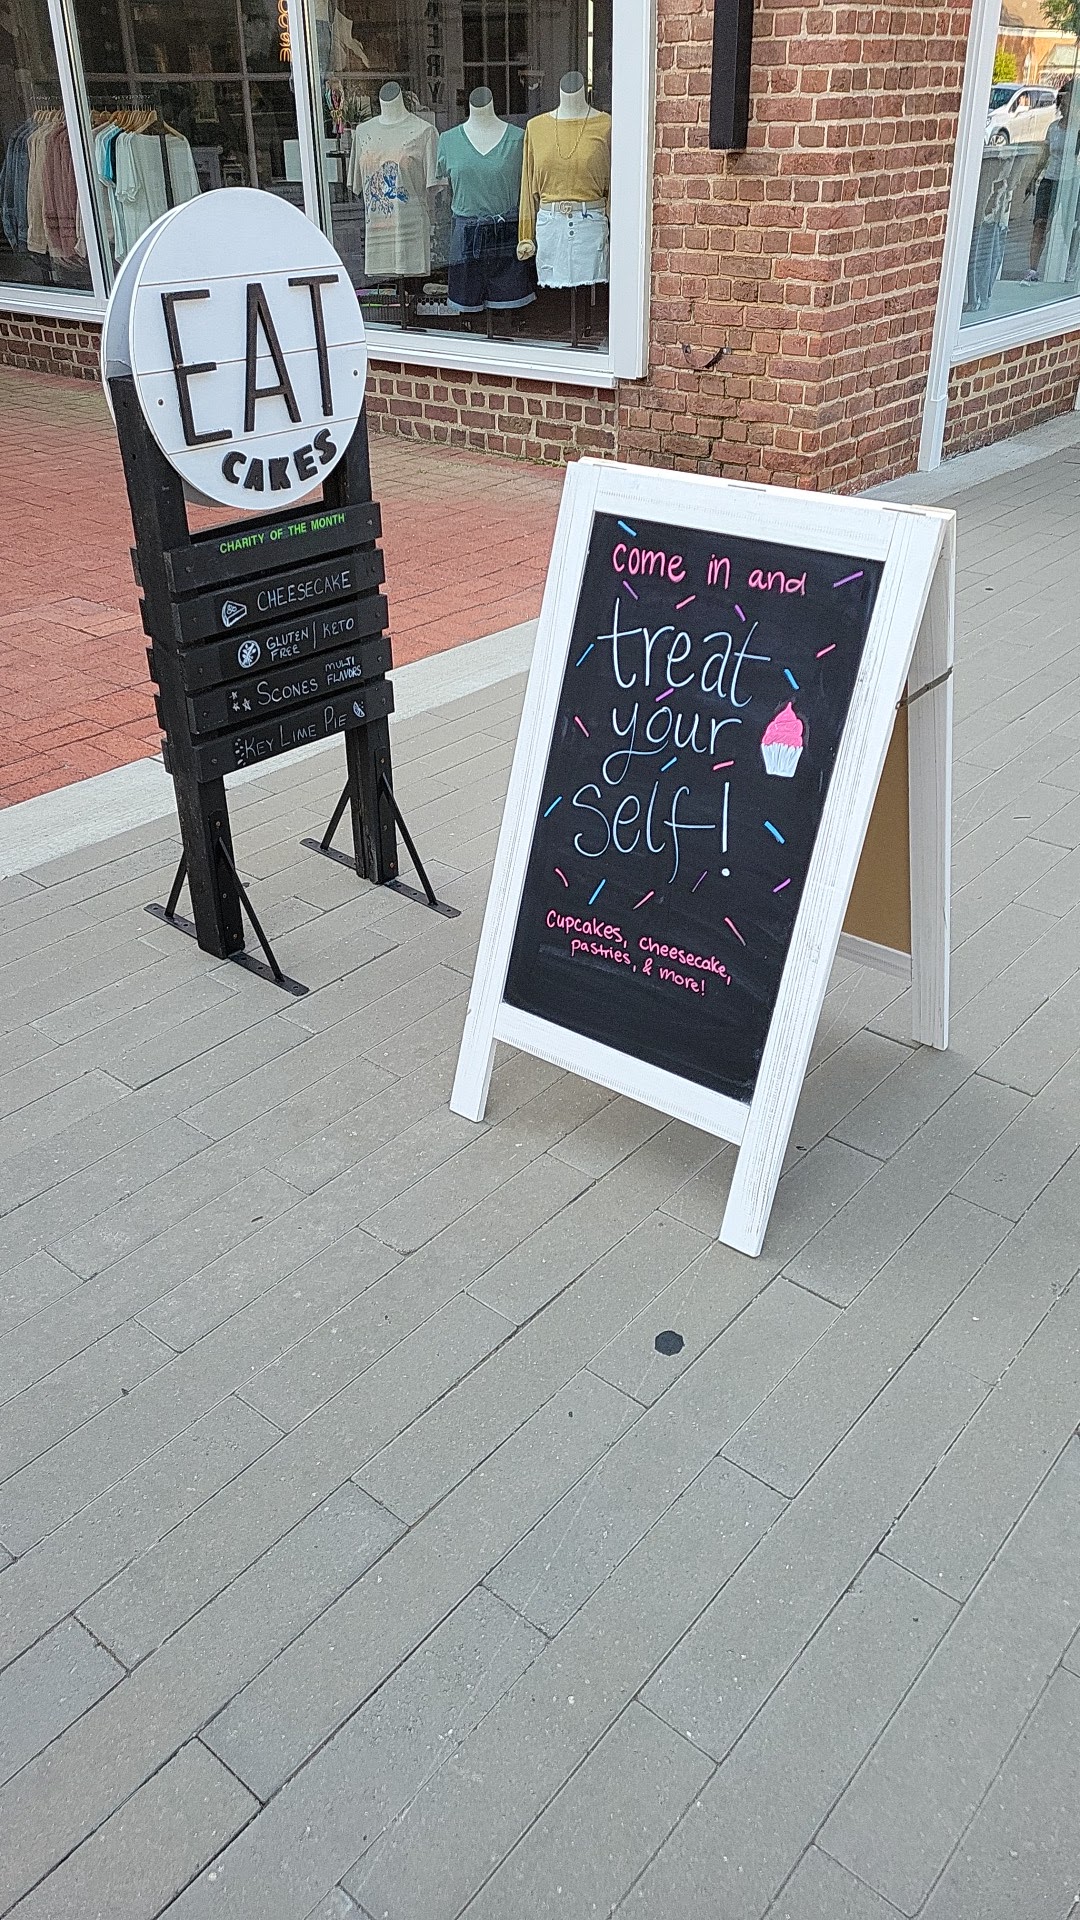 EAT
CAKES
CHARITY OF THE MONTH
CHEESECAKE
GLUTEN FREE | KETO
SCONES MULTI FLAVORS
KEY LIME PIE
come in and
treat
your
self!
Cupcakes, cheesecake,
pastries, & more!